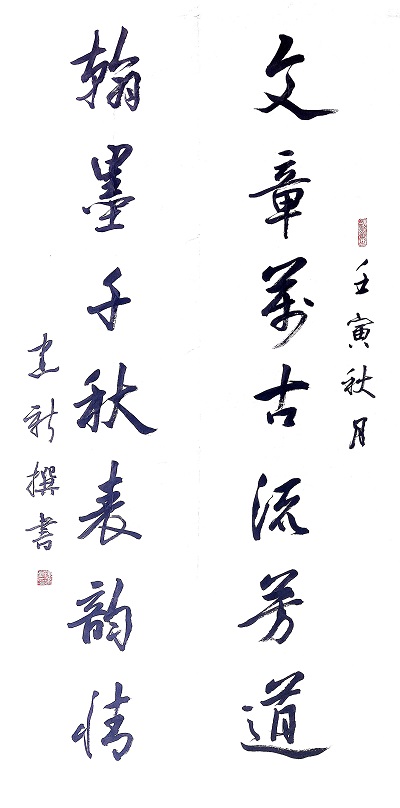 壬寅秋月
文章萬古流芳道
翰墨千秋表韵情
新撰書